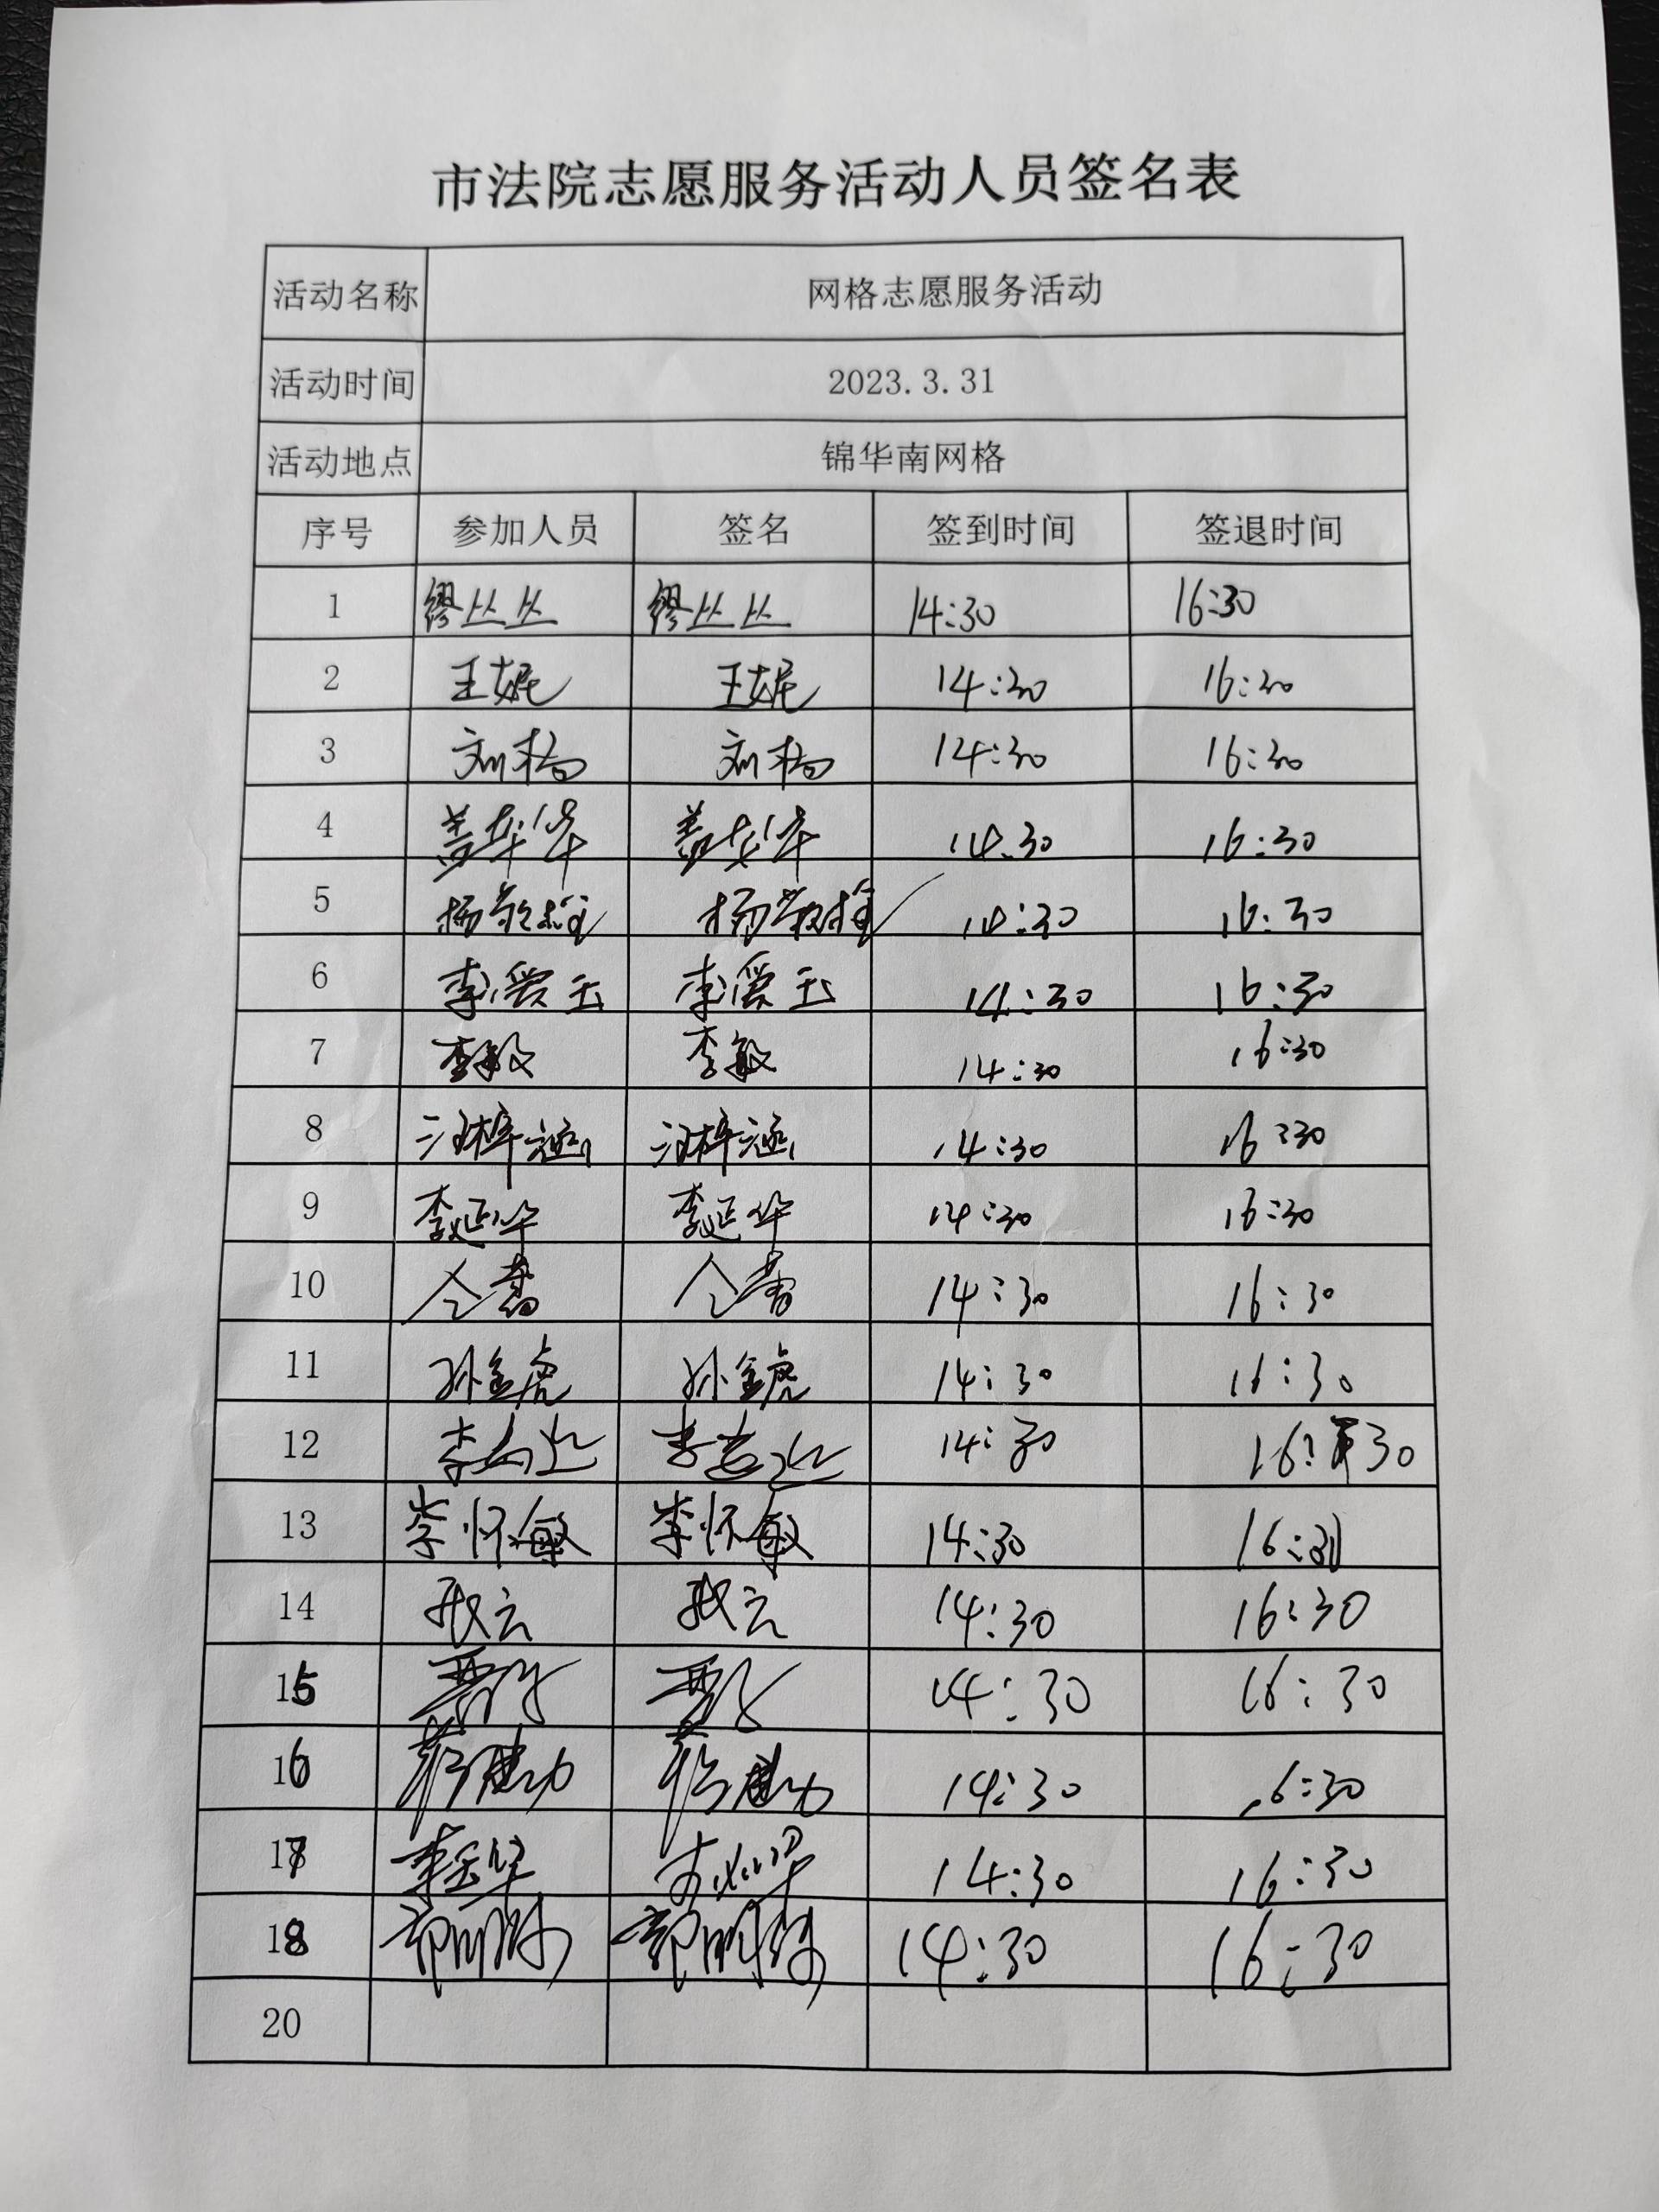 市法院志愿服务活动人员签名表
活动名称 网格志愿服务活动
活动时间 2023.3.31
活动地点 锦华南网格
序号 参加人员 签名 签到时间 签退时间
1 缪丛丛 缪丛丛 14:30 16:30
2 王娓 王娓 14:30 16:30
3 刘杨 刘杨 14:30 16:30
4 盖华华 盖华华 14:30 16:30
5 杨敬 杨敬 14:30 16:30
6 李爱玉 李爱玉 14:30 16:30
7 李敏 李敏 14:30 16:30
8 汪梓涵 汪梓涵 14:30 16:30
9 李延华 李延华 14:30 16:30
10 仝蕾 仝蕾 14:30 16:30
11 孙金虎 孙金虎 14:30 16:30
12 李 李 14:30 16:30
13 李怀敏 李怀敏 14:30 16:30
14 耿云 耿云 14:30 16:30
15 14:30 16:30
16 14:30 16:30
17 14:30 16:30
18 14:30 16:30
20